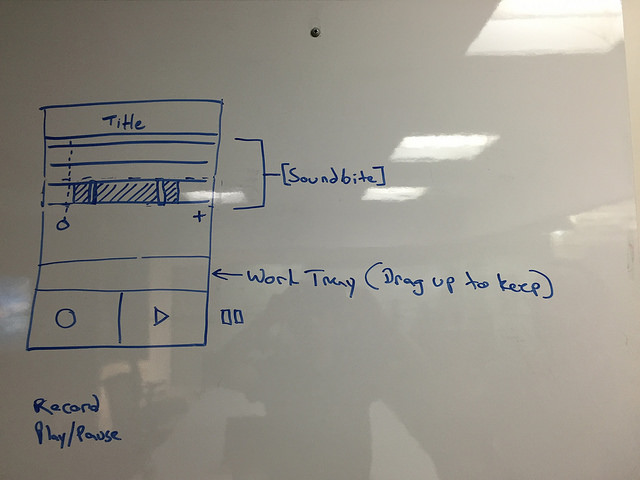 Title
[Soundbite]
+
Work Tray (Drag up to keep)
Record
Play/Pause